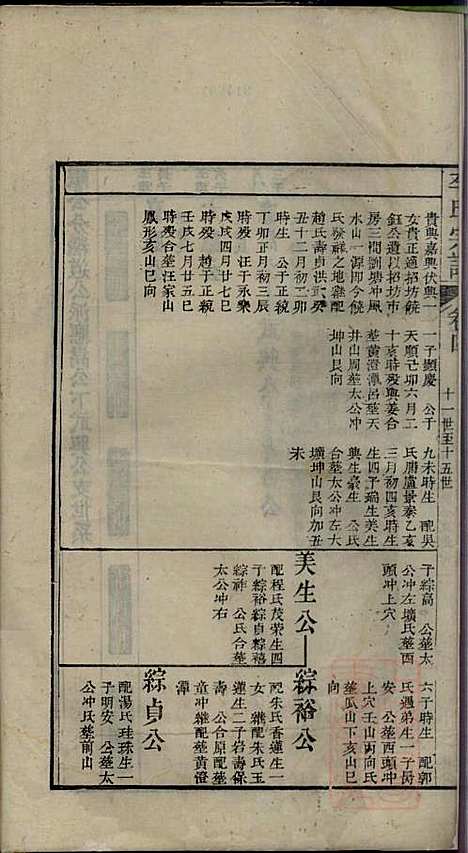 李氏宗譜 卷四 十一世至十五世
貴興嘉興伏興一
女貴正適招坊饒
鈺公遺以招坊市
房三間劉塘冲風
水山一源卽今饒
氏發祥之地繼配
趙氏壽貞洪武癸
丑十二月初二卯
時生 公于正統
丁卯正月初三辰
時殁 汪于永樂
戊戌四月廿七巳
時殁 趙于正統
壬戌七月廿五巳
時殁合塟汪家山
鳳形亥山巳向
一子顯慶 公于
天順己卯六月二
十亥時殁與姜合
塟黃澄潭呂塟天
井山周塟太公冲
坤山艮向
九未時生 配吳
氏勝盧景泰乙亥
三月初四亥時生
生四子瑞生美生
與生豪生 公氏
合塟太公冲左大
壙坤山艮向加丑
未
子綜高 公塟太
公冲左壙氏塟酉
頭冲上穴
美生公
配程氏茂榮生四
子綜裕綜貞綜禧
綜祥 公氏合塟
太公冲右
六子時生 配郭
氏邁弟生一子長
安 公塟西頭冲
上穴壬山丙向氏
塟瓜山下亥山巳
向
綜裕公
配朱氏香蓮生一
女 繼配朱氏玉
蓮生二子岩壽保
壽 公合原配塟
童冲繼配塟黃澄
潭
綜貞公
配湯氏珪珠生一
子明安 公塟太
公冲氏塟前山